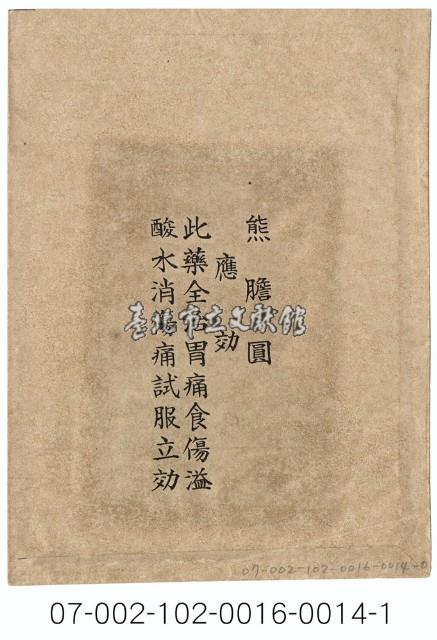 熊膽圓
應効
此藥全治胃痛食傷溢
酸水消腸痛試服立効
臺北市立文獻館
07-002-102-0016-0014-0
07-002-102-0016-0014-1